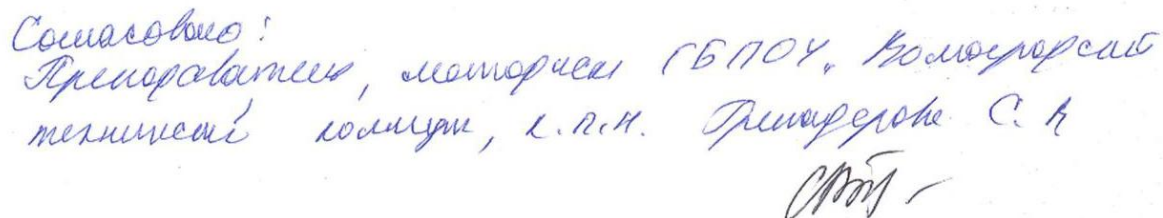 Согласовано:
Преподаватель, методист ГБПОУ „Волгоградский
технический колледж, к.п.н. Гренадерова С. В